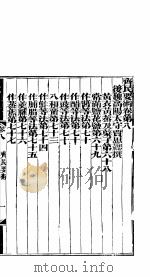 齊民要術卷第八
後魏高陽太守賈思勰撰
黃衣黃蒸及糵子第六十八
常滿鹽花鹽第六十九
作醬等法第七十
作酢法第七十一
作豉法第七十二
八和齏第七十三
作魚鮓第七十四
作脯腊法第七十五
作羹臛法第七十六
作䏑法第七十七